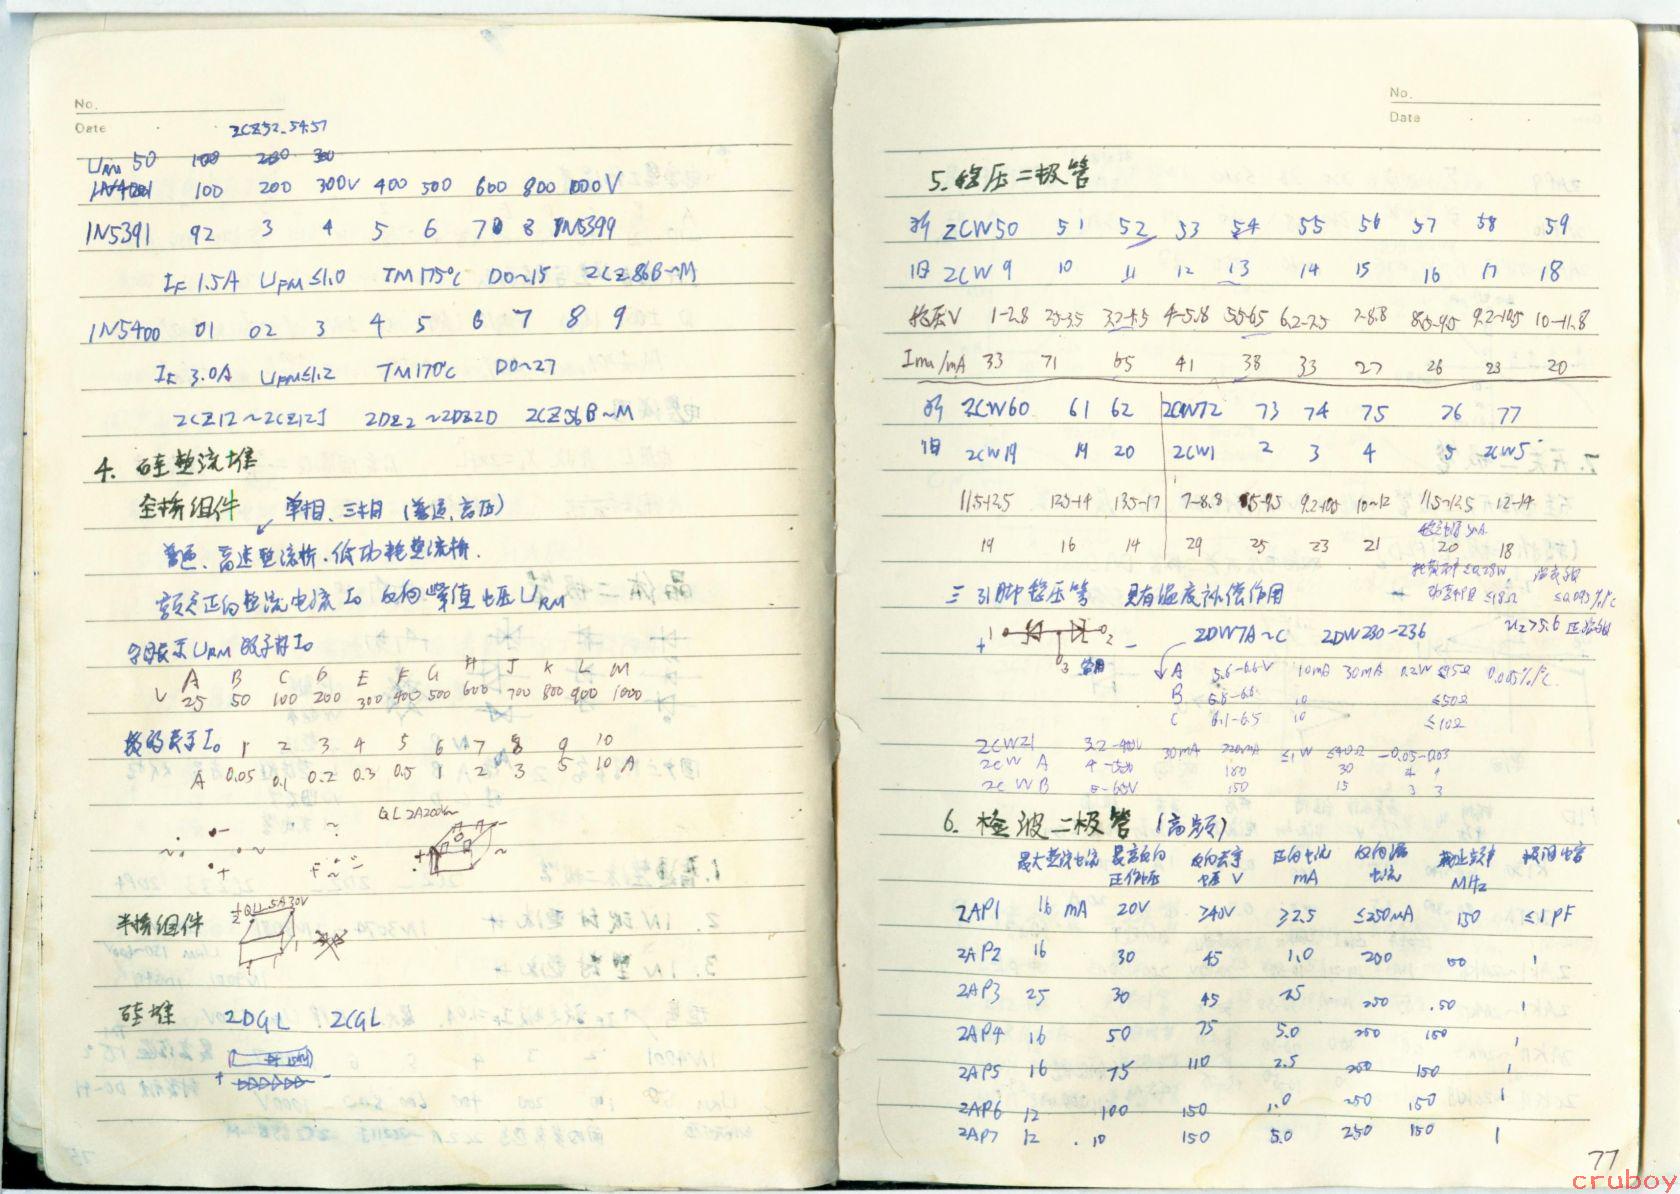 No.
Date
2CZ52.54.57
URM 50 100 200 300
1N4001 100 200 300V 400 500 600 800 1000V
1N5391 92 3 4 5 6 7 8 1N5399
IF 1.5A UFM≤1.0 TM175℃ DO~15 2CZ86B~M
1N5400 01 02 3 4 5 6 7 8 9
IF 3.0A UFM≤1.2 TM170℃ DO~27
2CZ12~2CZ12J 2DZ2~2DZ2D 2CZ56B~M
4. 硅整流堆
全桥组件 单相、三相(普通、高压)
普通、高速整流桥、低功耗整流桥.
额定正向整流电流Io 反向峰值电压URM
字母表示URM 数字表Io
A B C D E F G H J K L M
V 25 50 100 200 300 400 500 600 700 800 900 1000
数码表示Io 1 2 3 4 5 6 7 8 9 10
A 0.05 0.1 0.2 0.3 0.5 1 2 3 5 10 A
QL2A200
半桥组件 ½QL1.5A30V
硅堆 2DGL 2CGL
No.
Date
5. 稳压二极管
新 2CW50 51 52 53 54 55 56 57 58 59
旧 2CW9 10 11 12 13 14 15 16 17 18
稳压V 1-2.8 2.5-3.5 3.2-4.5 4-5.8 5.5-6.5 6.2-7.5 7-8.8 8.5-9.5 9.2-10.5 10-11.8
Imm/mA 33 71 65 41 38 33 27 26 23 20
新 2CW60 61 62 2CW72 73 74 75 76 77
旧 2CW19 19 20 2CW1 2 3 4 5 2CW5
11.5-12.5 12.5-14 13.5-17 7-8.8 8.5-9.5 9.2-10.5 10~12 11.5-12.5 12-14
19 16 14 29 25 23 21 20 18
三引脚稳压管 具有温度补偿作用
2DW7A~C 2DW230-236
≤18Ω
uz>5.6
A 5.6-6.6V 10mA 30mA 0.2W ≤95Ω 0.005%/℃
B 10 ≤50Ω
C 6.1-6.5 10 ≤10Ω
2CW21 30mA 220mA ≤1W ≤40Ω
2CW A 180 30 4
2CW B 150 15 3 3
6. 检波二极管 (高频)
最大整流电流 最高反向工作电压 反向击穿电压V 正向电流mA 反向漏电流 截止频率MHz 极间电容
2AP1 16 mA 20V ≥40V ≥2.5 ≤250mA 150 ≤1PF
2AP2 16 30 45 1.0 200 1
2AP3 25 30 45 250 50 1
2AP4 16 50 75 5.0 250 150 1
2AP5 16 75 110 2.5 250 150 1
2AP6 12 100 150 1.0 250 150 1
2AP7 12 10 150 5.0 250 150 1
77
cruboy